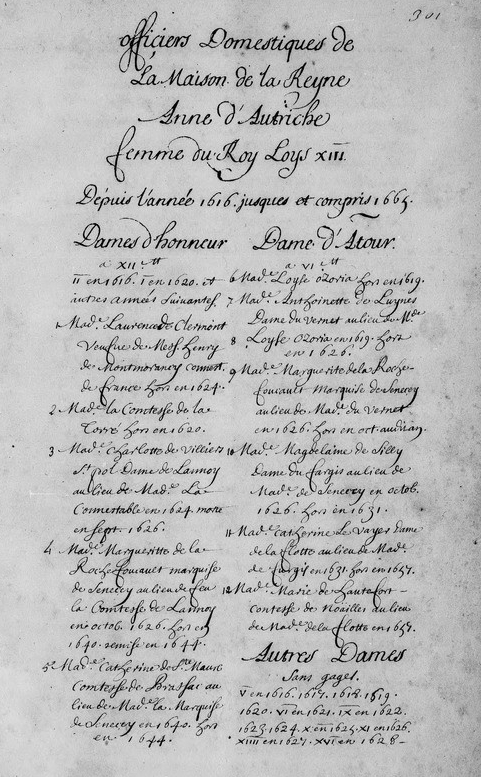 301
officiers Domestiques de
La Maison de la Reyne
Anne d'Autriche
femme du Roy Loys XIII.
Dépuis l'année 1616. jusques et compris 1665.
Dames d'honneur
a XII.
II en 1616. I en 1620. et
autres années Suivantes.
1 Mad.e Laurence de Clermont
Veufve de Mess.e Henry
de Montmorancy connest.
de france hors en 1624.
2 Mad.e la Comtesse de la
Torré hors en 1620.
3 Mad.e Charlotte de Villiers
St. pol Dame de Lannoy
au lieu de Mad.e La
Connestable en 1624. morte
en sept. 1626.
4 Mad.e Margueritte de la
Rochefoucault marquise
de Senecey au lieu de feu
la Comtesse de Lannoy
en octob. 1626. hors en
1640. remise en 1644.
5 Mad.e Catherine de Ste. Maure
Comtesse de Brassac au
lieu de Mad.e la Marquise
de Senecey en 1640. hors
en 1644.
Dame d'Atour.
a VI.
6 Mad.e Loyse ozoria hors en 1619.
7 Mad.e Anthoinette de Luynes
Dame du Vernet au lieu de Mde
8 Loyse ozoria en 1619. hors
en 1626.
9 Mad.e Marguerite de la Roche-
foucault Marquise de Senecey
au lieu de Mad.e du Vernet
en 1626. hors en oct. audit an.
10 Mad.e Magdelaine de Silly
Dame du fargis au lieu de
Mad.e de Senecey en octob.
1626. hors en 1631.
11 Mad.e Catherine Le Vayer dame
de la flotte au lieu de Mad.e
de fargis en 1631. hors en 1657.
12 Mad.e Marie de Hautefort
contesse de Noailles au lieu
de Mad.e de la flotte en 1657.
Autres Dames
Sans gages.
V en 1616. 1617. 1618. 1619.
1620. VI en 1621. IX en 1622.
1623. 1624. X en 1625. XI en 1626.
XIIII en 1627. XVI en 1628-